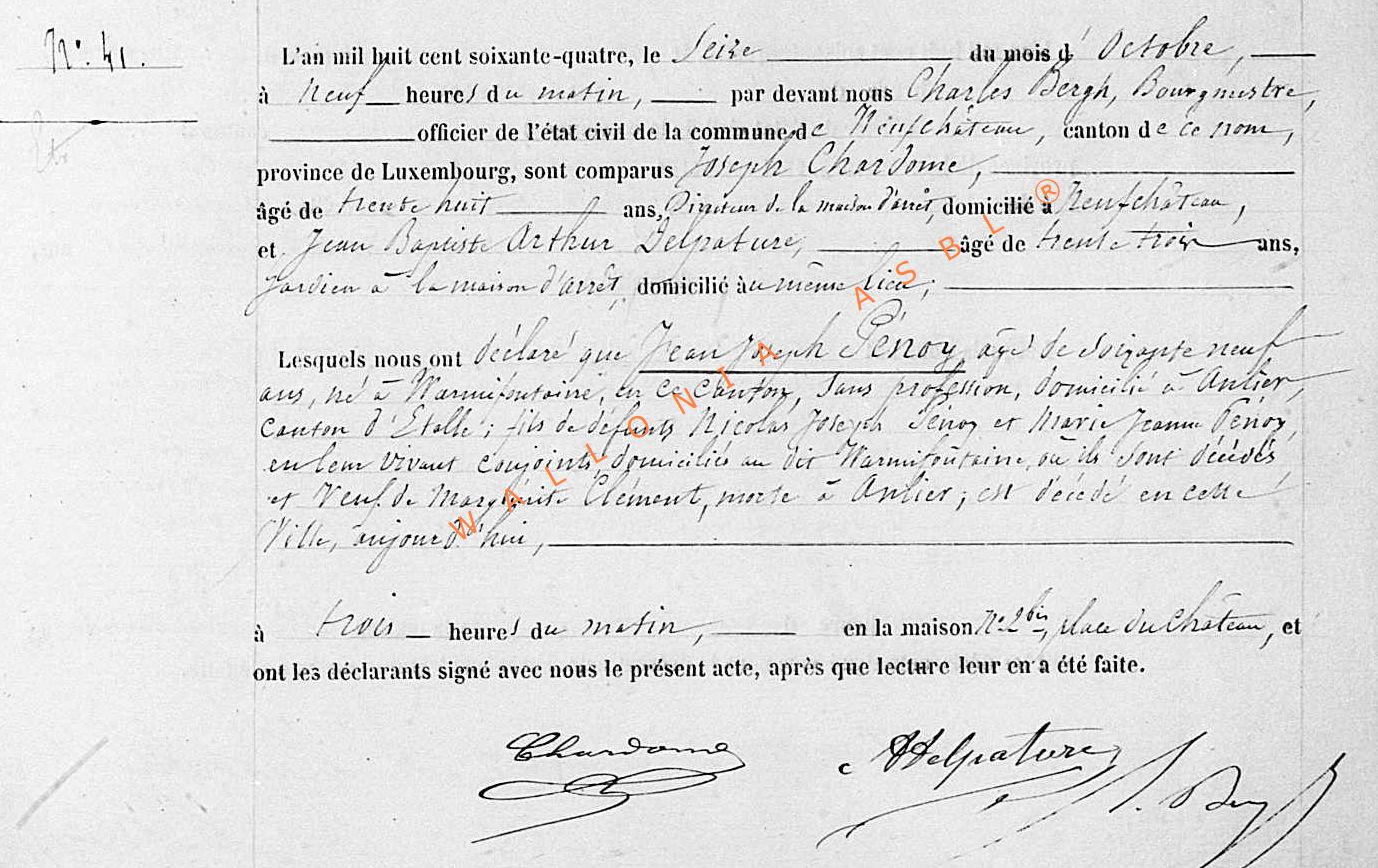 N° 41.
L'an mil huit cent soixante-quatre, le Seize du mois d'Octobre,
à Neuf heures du matin, par devant nous Charles Bergh, Bourgmestre,
officier de l'état civil de la commune de Neufchâteau, canton de ce nom,
province de Luxembourg, sont comparus Joseph Chardome,
âgé de trente huit ans, Directeur de la maison d'arrêt, domicilié à Neufchâteau,
et Jean Baptiste Arthur Delpature, âgé de trente trois ans,
gardien à la maison d'arrêt, domicilié au même lieu;
Lesquels nous ont déclaré que Jean Joseph Pénoy, âgé de soixante neuf
ans, né à Warmifontaine, en ce canton, sans profession, domicilié à Anlier,
canton d'Etalle; fils de défunts Nicolas Joseph Pénoy et Marie Jeanne Pénoy,
en leur vivant conjoints, domiciliés au dit Warmifontaine, où ils sont décédés
et Veuf de Marguerite Clément, morte à Anlier; est décédé en cette
Ville, aujourd'hui,
à trois heures du matin, en la maison N° 2bis, place du Château, et
ont les déclarants signé avec nous le présent acte, après que lecture leur en a été faite.
Chardome ADelpature
WALLONIA ASBL ®